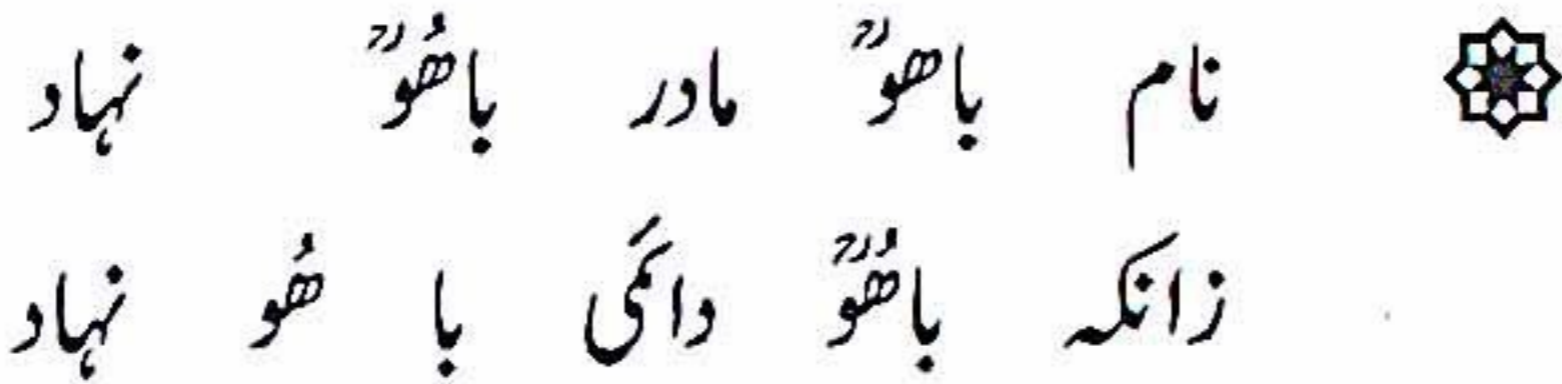 نام باھوؒ مادر باھُوؒ نہاد
زانکہ باھُوؒ دائمی با ھُو نہاد